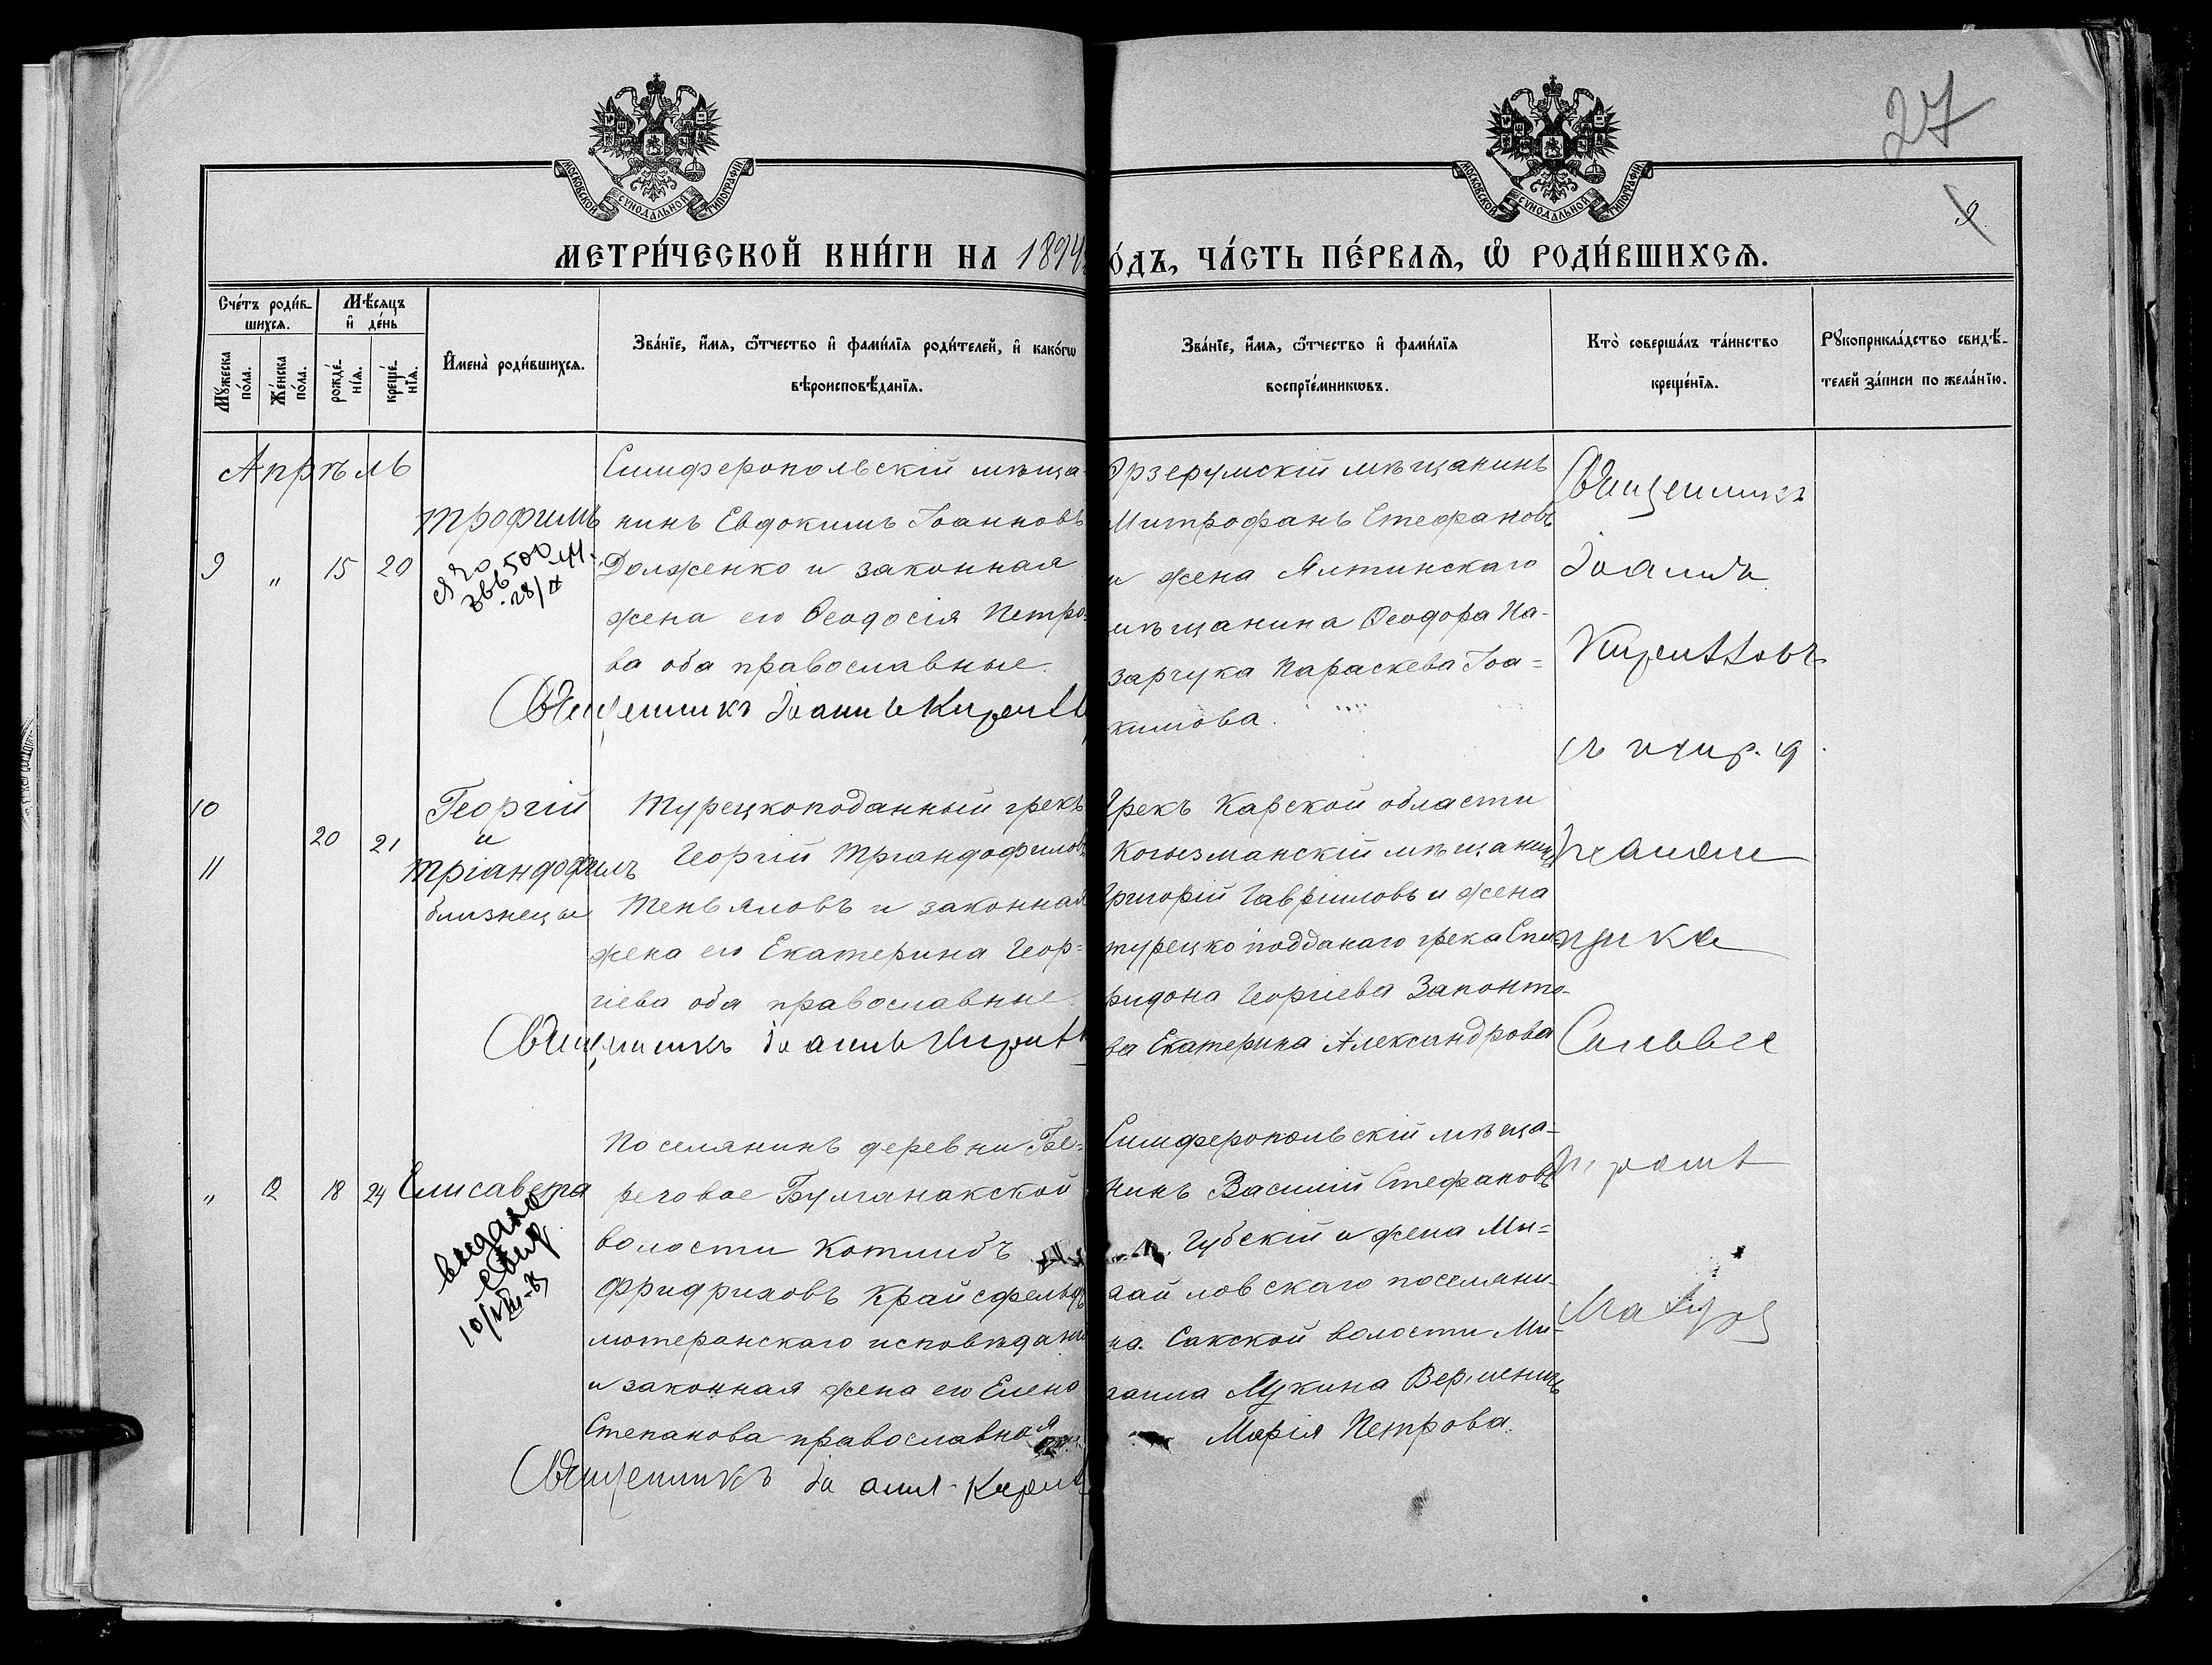 27
9
МОСКОВСКОЙ СѴНОДАЛЬНОЙ ТИПОГРАФІИ
МОСКОВСКОЙ СѴНОДАЛЬНОЙ ТИПОГРАФІИ
МЕТРИ́ЧЕСКОЙ КНИ́ГИ НА 1894
О́ДЪ, ЧА́СТЬ ПЕ́РВАѦ, Ѡ РОДИ́ВШИХСѦ.
Сче́тъ роди́в-
шихсѧ.
Мꙋжеска по́ла.
Же́нска по́ла.
Мѣ́сѧцъ
и҆ де́нь
рожде́-
нїѧ.
креще́-
нїѧ.
И҆мена̀ роди́вшихсѧ.
Зва́нїе, и҆́мѧ, ѻ҆́тчество и҆ фами́лїѧ роди́телей, и҆ како́гѡ
вѣроисповѣ́данїѧ.
Зва́нїе, и҆́мѧ, ѻ҆́тчество и҆ фами́лїѧ
воспрїе́мникѡвъ.
Кто̀ соверша́лъ та́инство
креще́нїѧ.
Рꙋкоприкла́дство свидѣ́-
телей за́писи по жела́нїю.
Апрѣль
9 " 15 20
Трофимъ
28/IX
Симферопольскій мѣща-
нинъ Евдокимъ Іоанновъ
Долженко и законная
жена его Ѳеодосія Петро-
ва оба православные.
Священникъ Іоаннъ
Эрзерумскій мѣщанинъ
Митрофанъ Стефановъ
и жена Ялтинскаго
мѣщанина Ѳеодора На-
зарчука Параскева Іоа=
кимова.
Священникъ
Іоаннъ
съ псир.
10
11
20 21
Георгій
и
Тріандофилъ
близнецы
Турецкоподанный грекъ
Георгій Тріандофиловъ
Теньямовъ и законная
жена его Екатерина Геор=
гіева оба православные.
Священникъ Іоаннъ
Грекъ Карской области
Кагызманскій мѣщанинъ
Григорій Гавріиловъ и жена
турецко подданаго грека Спи-
ридона Георгіева Запонто-
ва Екатерина Александрова
" 12 18 24
Елисавета
выдано
10/VIII
Поселянинъ деревни Бе-
реговое Булганакской
волости Котлибъ
Фридриховъ Крайсфельдъ
лютеранскаго исповѣдані
и законная жена его Елена
Степанова православная
Священникъ Іоаннъ
Симферопольскій мѣща-
нинъ Василій Стефановъ
Губскій и жена Ми=
хайловскаго поселяни-
на Сакской волости Ми-
хаила Лукина
Марія Петрова.